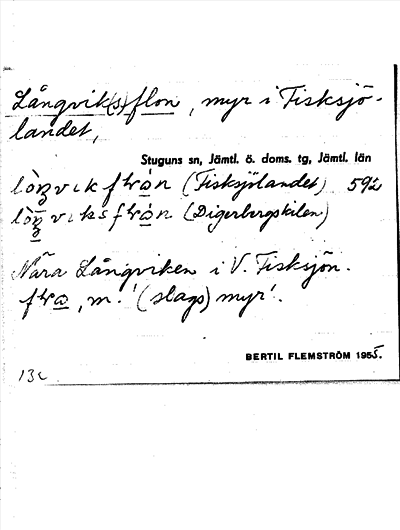 Långvik(s)flon, myr i Fisksjö-
landet,
Stuguns sn, Jämtl. ö. doms. tg, Jämtl. län
(Fisksjölandet) 592
(Digerbergskilen)
Nära Långviken i V. Fisksjön.
m. '(slags) myr'.
BERTIL FLEMSTRÖM 1955.
13c